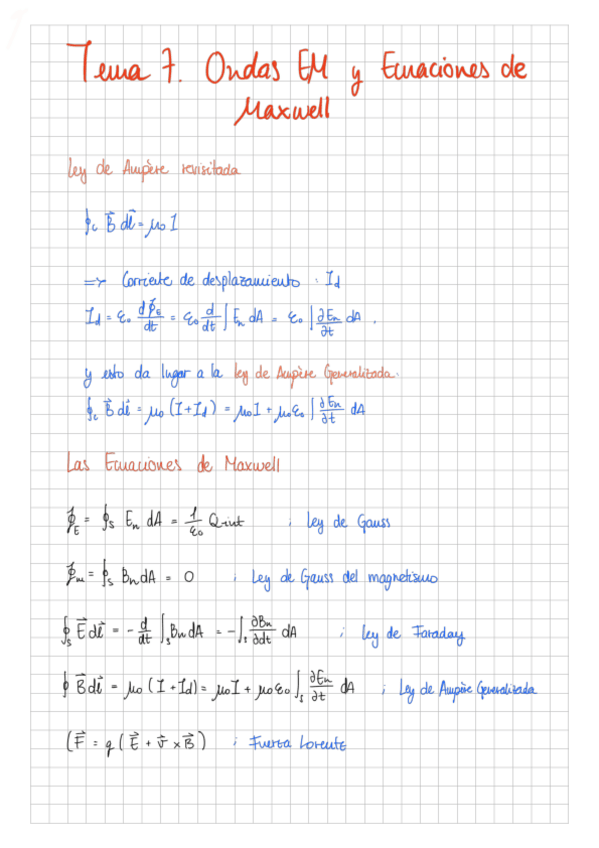 Tema 7. Ondas EM y Ecuaciones de
Maxwell
Ley de Ampère revisitada
∮c B⃗ dl⃗ = μo I
=> Corriente de desplazamiento : Id
Id = εo dϕE/dt = εo d/dt ∫ En dA = εo ∫ ∂En/∂t dA .
y esto da lugar a la ley de Ampère Generalizada.
∮c B⃗ dl⃗ = μo (I + Id) = μoI + μoεo ∫ ∂En/∂t dA
Las Ecuaciones de Maxwell
ϕE = ∮s En dA = 1/εo Qint ; Ley de Gauss
ϕm = ∮s Bn dA = 0 ; Ley de Gauss del magnetismo
∮s E⃗ dl⃗ = - d/dt ∫s Bn dA = - ∫s ∂Bn/∂dt dA ; Ley de Faraday
∮ B⃗ dl⃗ = μo (I + Id) = μoI + μoεo ∫s ∂En/∂t dA ; Ley de Ampère Generalizada
(F⃗ = q (E⃗ + v⃗ × B⃗) ; Fuerza Lorentz